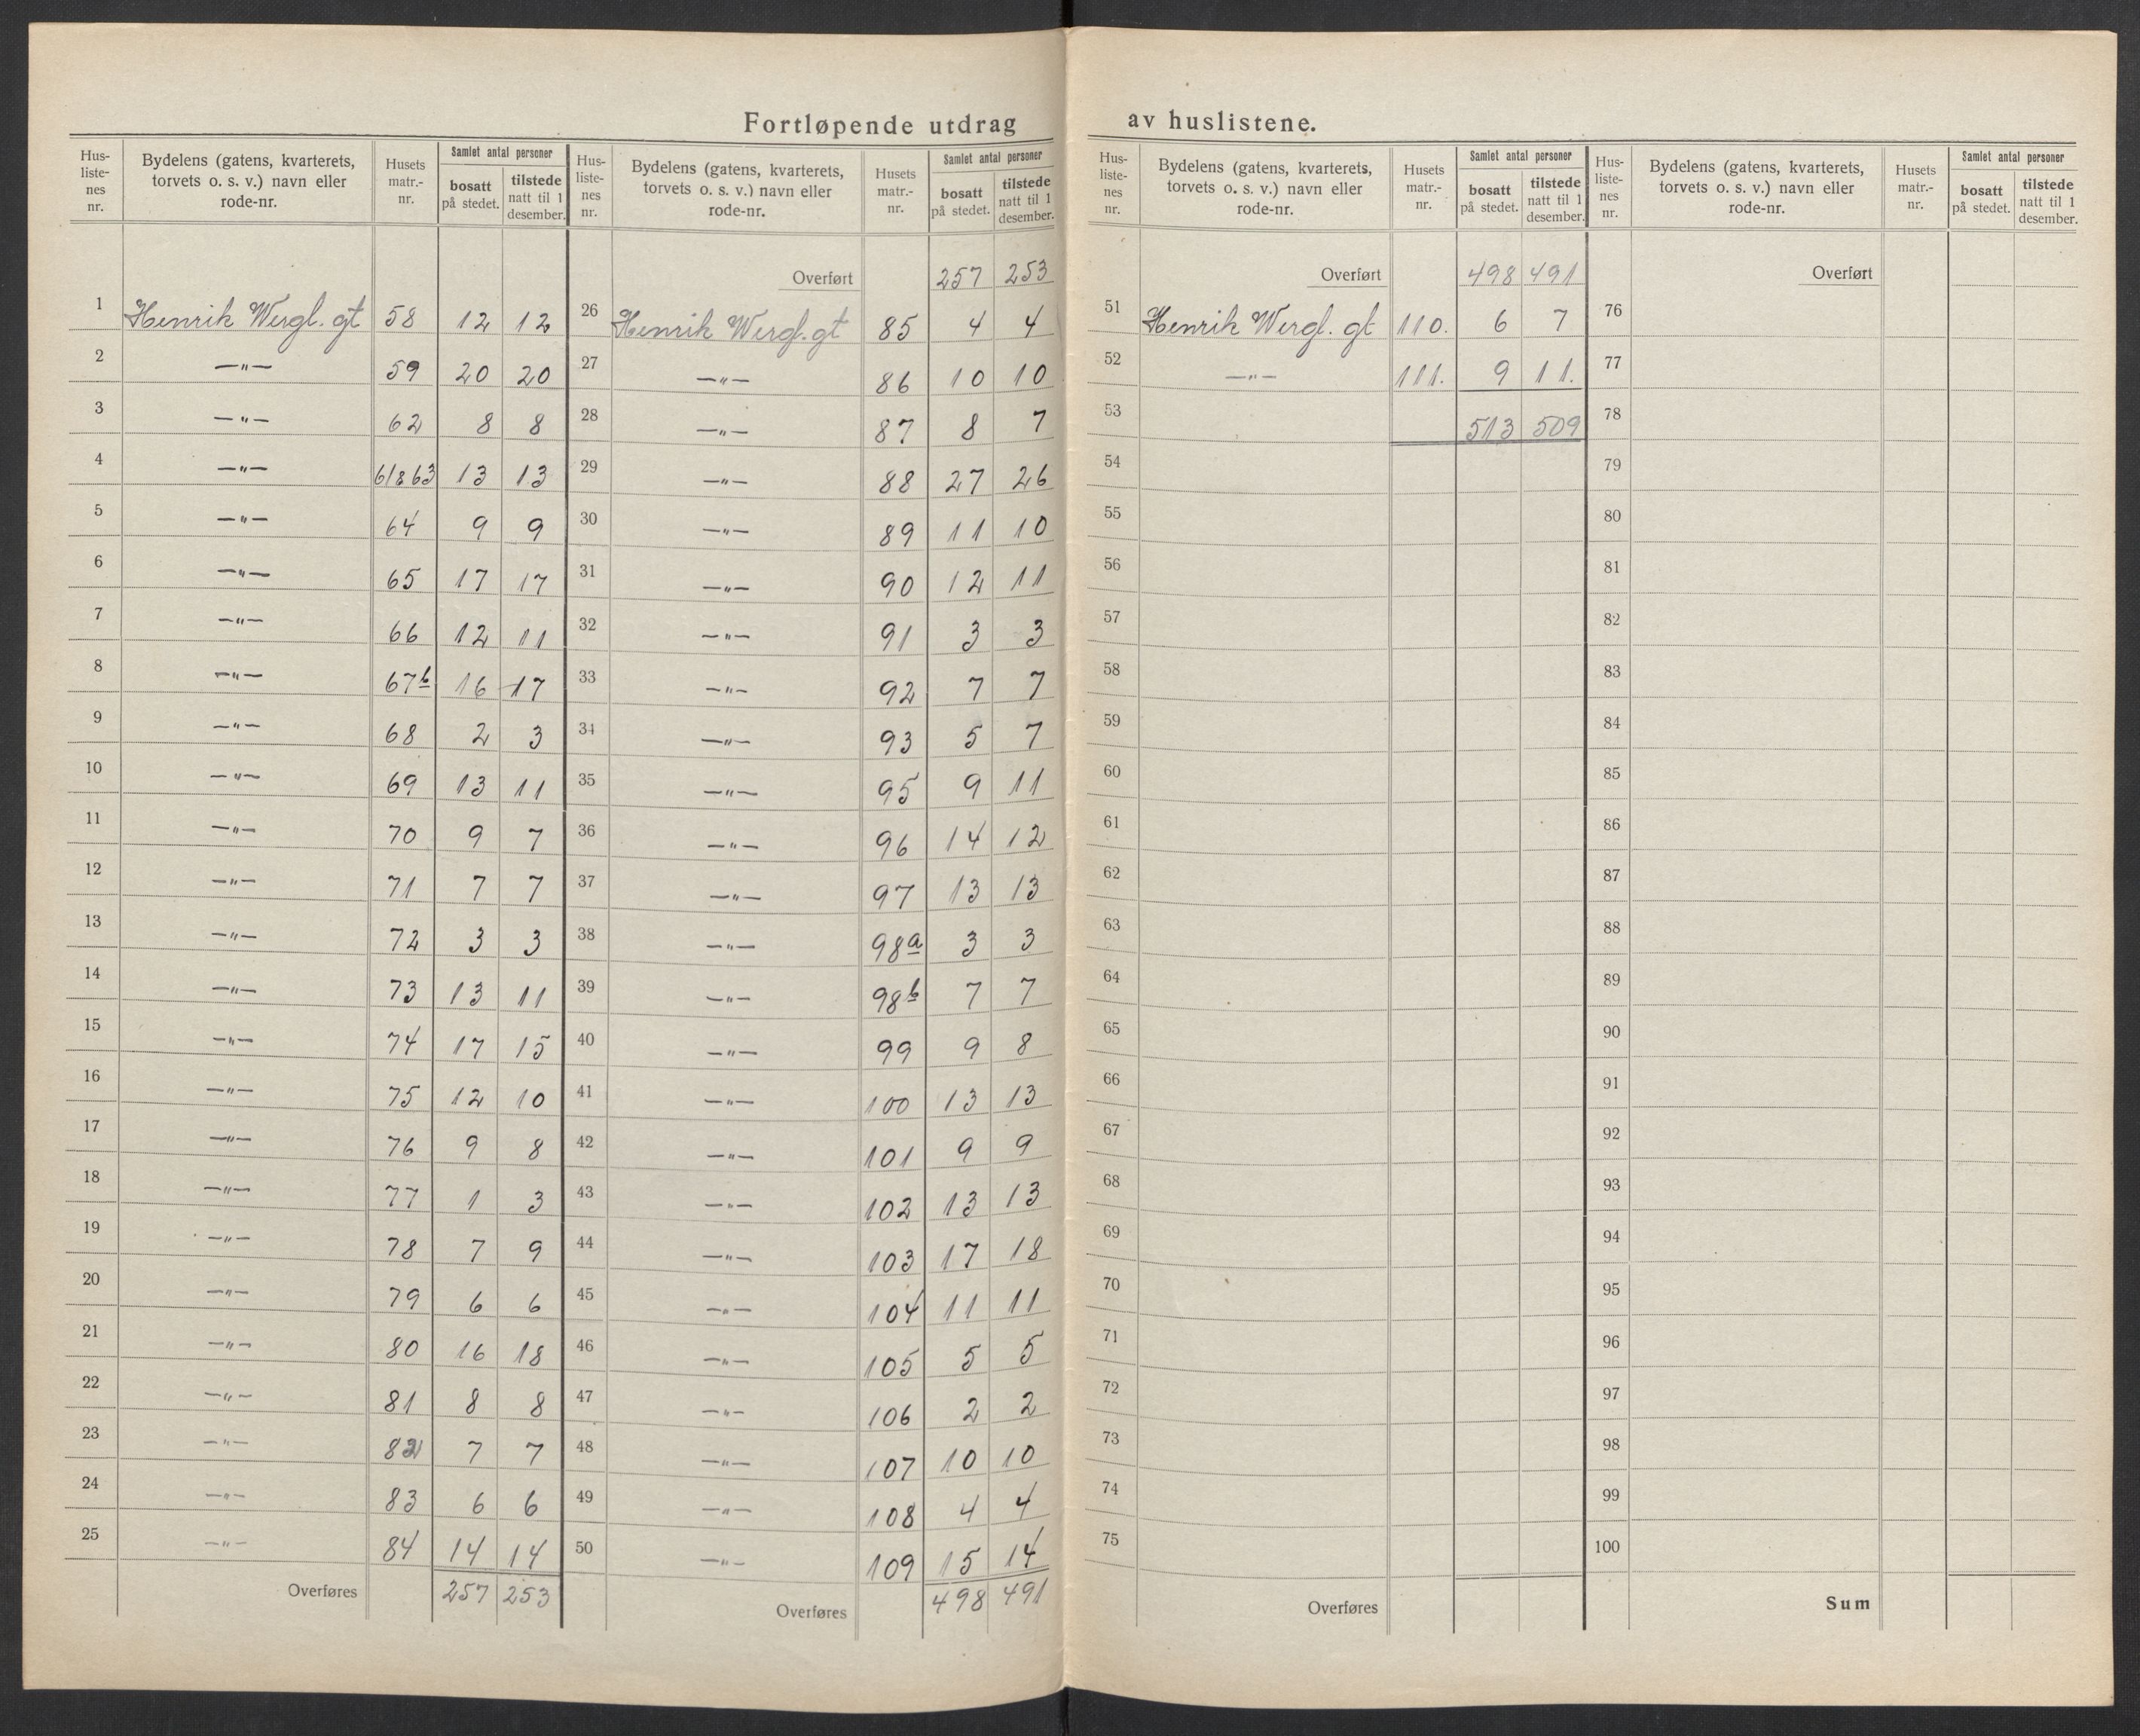 Fortløpende utdrag av huslistene.
Hus-listenes nr. | Bydelens (gatens, kvarterets, torvets o. s. v.) navn eller rode-nr. | Husets matr.-nr. | Samlet antal personer: bosatt på stedet. | tilstede natt til 1 desember.
1 Henrik Wergl. gt 58 12 12
2 —„— 59 20 20
3 —„— 62 8 8
4 —„— 61&63 13 13
5 —„— 64 9 9
6 —„— 65 17 17
7 —„— 66 12 11
8 —„— 67b 16 17
9 —„— 68 2 3
10 —„— 69 13 11
11 —„— 70 9 7
12 —„— 71 7 7
13 —„— 72 3 3
14 —„— 73 13 11
15 —„— 74 17 15
16 —„— 75 12 10
17 —„— 76 9 8
18 —„— 77 1 3
19 —„— 78 7 9
20 —„— 79 6 6
21 —„— 80 16 18
22 —„— 81 8 8
23 —„— 82 7 7
24 —„— 83 6 6
25 —„— 84 14 14
Overføres 257 253
Hus-listenes nr. | Bydelens (gatens, kvarterets, torvets o. s. v.) navn eller rode-nr. | Husets matr.-nr. | Samlet antal personer: bosatt på stedet. | tilstede natt til 1 desember.
Overført 257 253
26 Henrik Wergl. gt 85 4 4
27 —„— 86 10 10
28 —„— 87 8 7
29 —„— 88 27 26
30 —„— 89 11 10
31 —„— 90 12 11
32 —„— 91 3 3
33 —„— 92 7 7
34 —„— 93 5 7
35 —„— 95 9 11
36 —„— 96 14 12
37 —„— 97 13 13
38 —„— 98a 3 3
39 —„— 98b 7 7
40 —„— 99 9 8
41 —„— 100 13 13
42 —„— 101 9 9
43 —„— 102 13 13
44 —„— 103 17 18
45 —„— 104 11 11
46 —„— 105 5 5
47 —„— 106 2 2
48 —„— 107 10 10
49 —„— 108 4 4
50 —„— 109 15 14
Overføres 498 491
Hus-listenes nr. | Bydelens (gatens, kvarterets, torvets o. s. v.) navn eller rode-nr. | Husets matr.-nr. | Samlet antal personer: bosatt på stedet. | tilstede natt til 1 desember.
Overført 498 491
51 Henrik Wergl. gt 110. 6 7
52 —„— 111. 9 11.
53 513 509
54
55
56
57
58
59
60
61
62
63
64
65
66
67
68
69
70
71
72
73
74
75
Overføres
Hus-listenes nr. | Bydelens (gatens, kvarterets, torvets o. s. v.) navn eller rode-nr. | Husets matr.-nr. | Samlet antal personer: bosatt på stedet. | tilstede natt til 1 desember.
Overført
76
77
78
79
80
81
82
83
84
85
86
87
88
89
90
91
92
93
94
95
96
97
98
99
100
Sum